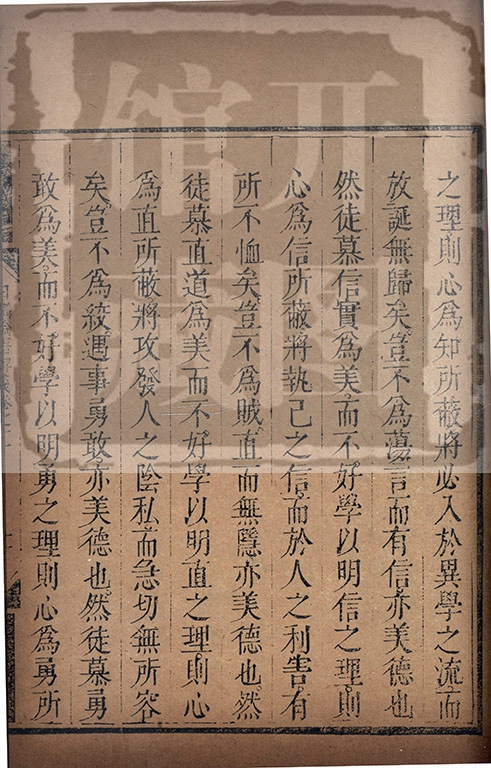 之理則心爲知所蔽將必入於異學之流而
放誕無歸矣豈不爲蕩言而有信亦美德也
然徒慕信實爲美而不好學以明信之理則
心爲信所蔽將執己之信而於人之利害有
所不恤矣豈不爲賊直而無隱亦美德也然
徒慕直道爲美而不好學以明直之理則心
爲直所蔽將攻發人之陰私而急切無所容
矣豈不爲絞遇事勇敢亦美德也然徒慕勇
敢爲美而不好學以明勇之理則心爲勇所